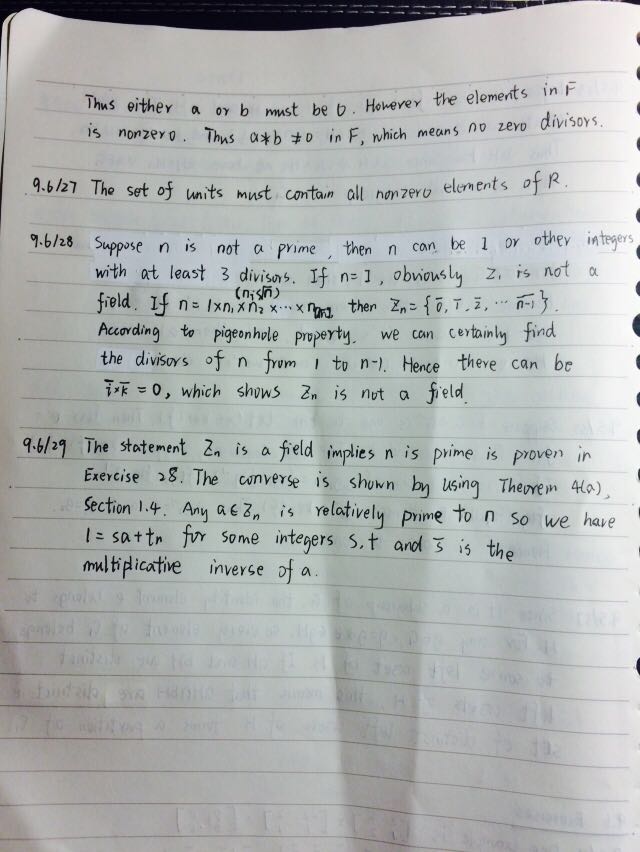 Thus either a or b must be 0. However the elements in F
is nonzero. Thus a*b ≠0 in F, which means no zero divisors.
9.6/27 The set of units must contain all nonzero elements of R.
9.6/28 Suppose n is not a prime, then n can be 1 or other integers
with at least 3 divisors. If n=1, obviously Z₁ is not a
(nᵢ≤√n)
field. If n= 1×n₁×n₂×⋯× then Zₙ={0̅, 1̅, 2̅, ⋯ n̅-̅1̅}.
According to pigeonhole property, we can certainly find
the divisors of n from 1 to n-1. Hence there can be
i̅×k̅ =0, which shows Zₙ is not a field.
9.6/29 The statement Zₙ is a field implies n is prime is proven in
Exercise 28. The converse is shown by using Theorem 4(a),
Section 1.4. Any a∈Zₙ is relatively prime to n so we have
1=sa+tn for some integers s,t and s̅ is the
multiplicative inverse of a.